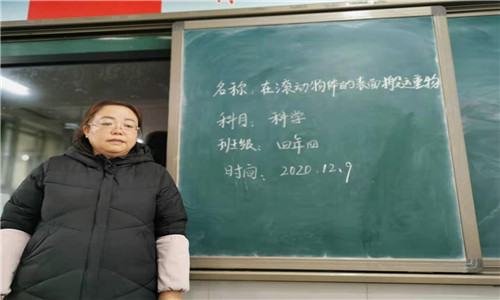 名称：在滚动物体的表面搬运重物
科目：科学
班级：四年四
时间：2020.12.9